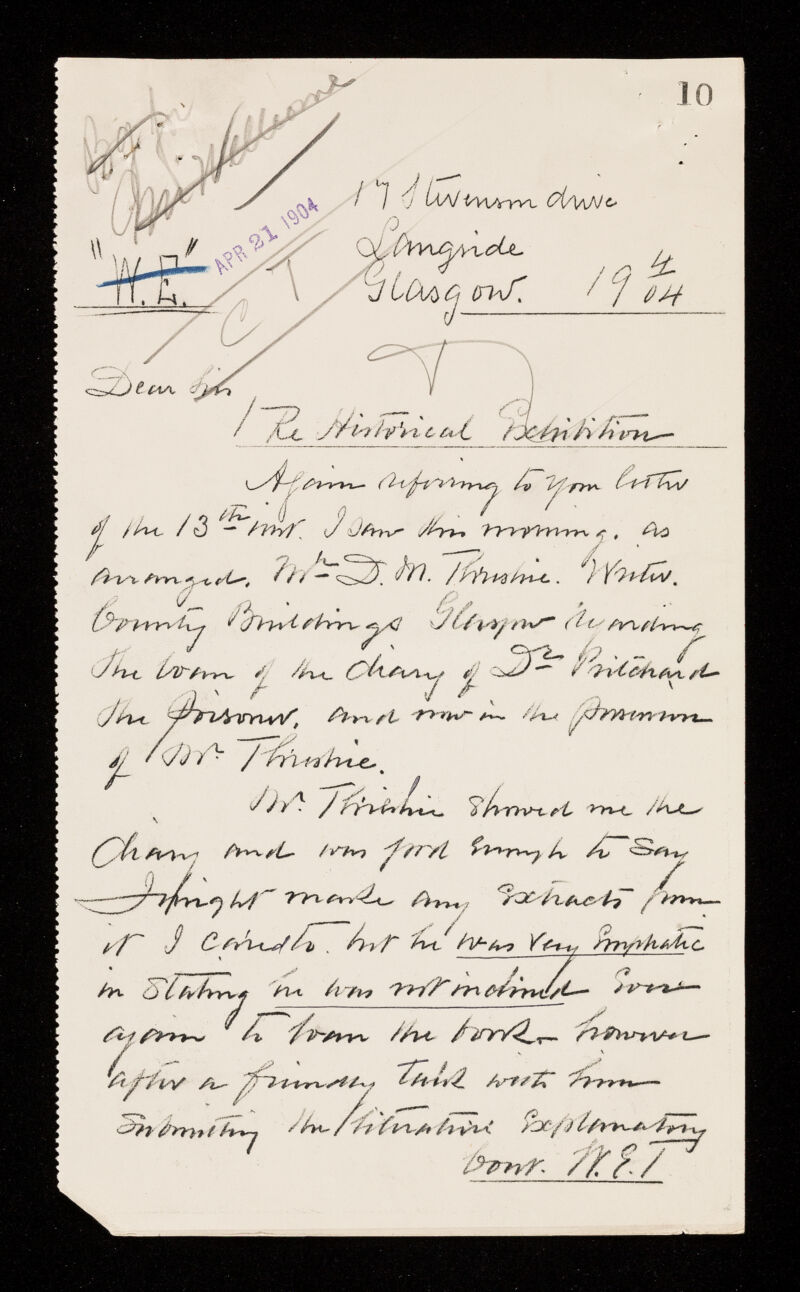 10
Miss Williams
APR 21 1904
"W.E."
C T
17 Stevenson drive
Langside
Glasgow. 19 4/04
Dear Sir
Re Historical Exhibition
Again referring to your letter
of the 13th inst. I saw this morning, as
arranged, Mr D. M. Thrushie. Writer.
County Buildings Glasgow regarding
the loan of the diary of Dr Pritchard
the Poisoner, and now in the possession
of Mr. Thrushie.
Mr. Thrushie showed me the
diary and was good enough to say
I might make any extracts from
it I cared to. but he was very Emphatic
in Stating he was not inclined Ever
again to loan the book – however
after a friendly talk with him
Submitting the literature Explanatory
Cont. W.E.T